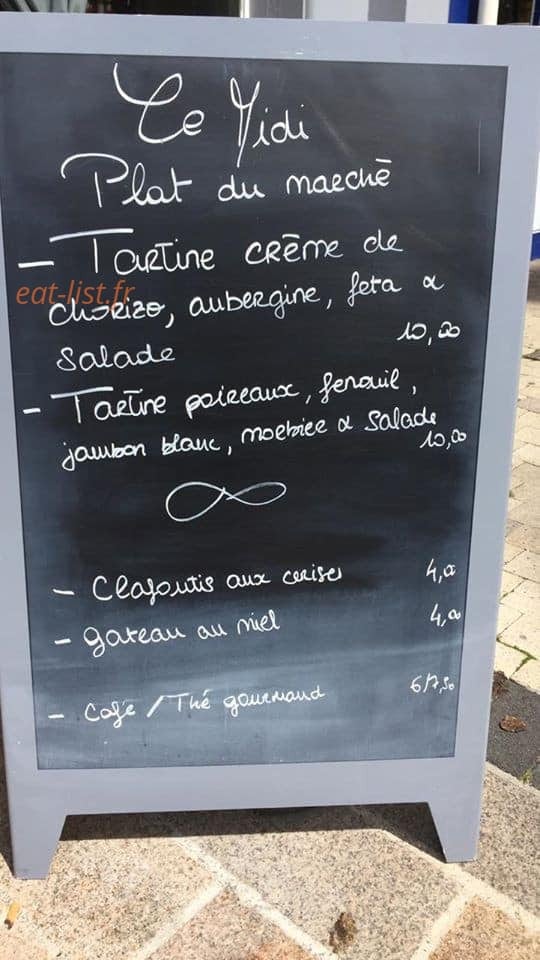 Le Midi
Plat du marché
- Tartine crème de
eat-list.fr
chorizo, aubergine, feta &
salade
10,00
- Tartine poireaux, fenouil,
jambon blanc, morbier & salade
10,00
- Clafoutis aux cerises 4,00
- gateau au miel 4,00
- Café / Thé gourmand 6/7,50